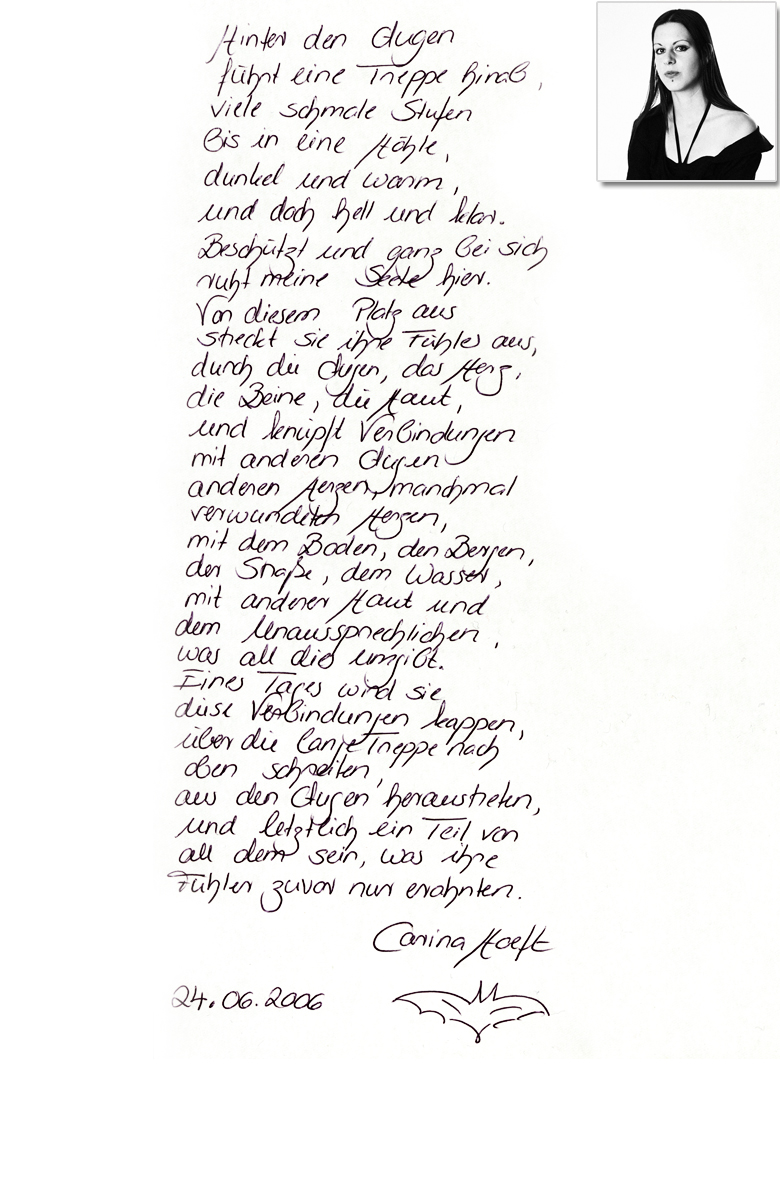 Hinter den Augen
führt eine Treppe hinab,
viele schmale Stufen
bis in eine Höhle,
dunkel und warm,
und doch hell und klar.
Beschützt und ganz bei sich
ruht meine Seele hier.
Von diesem Platz aus
streckt sie ihre Fühler aus,
durch die Augen, das Herz,
die Beine, die Haut,
und knüpft Verbindungen
mit anderen Augen
anderen Herzen, manchmal
verwundeten Herzen,
mit dem Boden, den Bergen,
der Straße, dem Wasser,
mit anderer Haut und
dem Unaussprechlichen,
was all dies umgibt.
Eines Tages wird sie
diese Verbindungen kappen,
über die lange Treppe nach
oben schreiten,
aus den Augen heraustreten,
und letztlich ein Teil von
all dem sein, was ihre
Fühler zuvor nur erahnten.
Carina Hoeft
24.06.2006